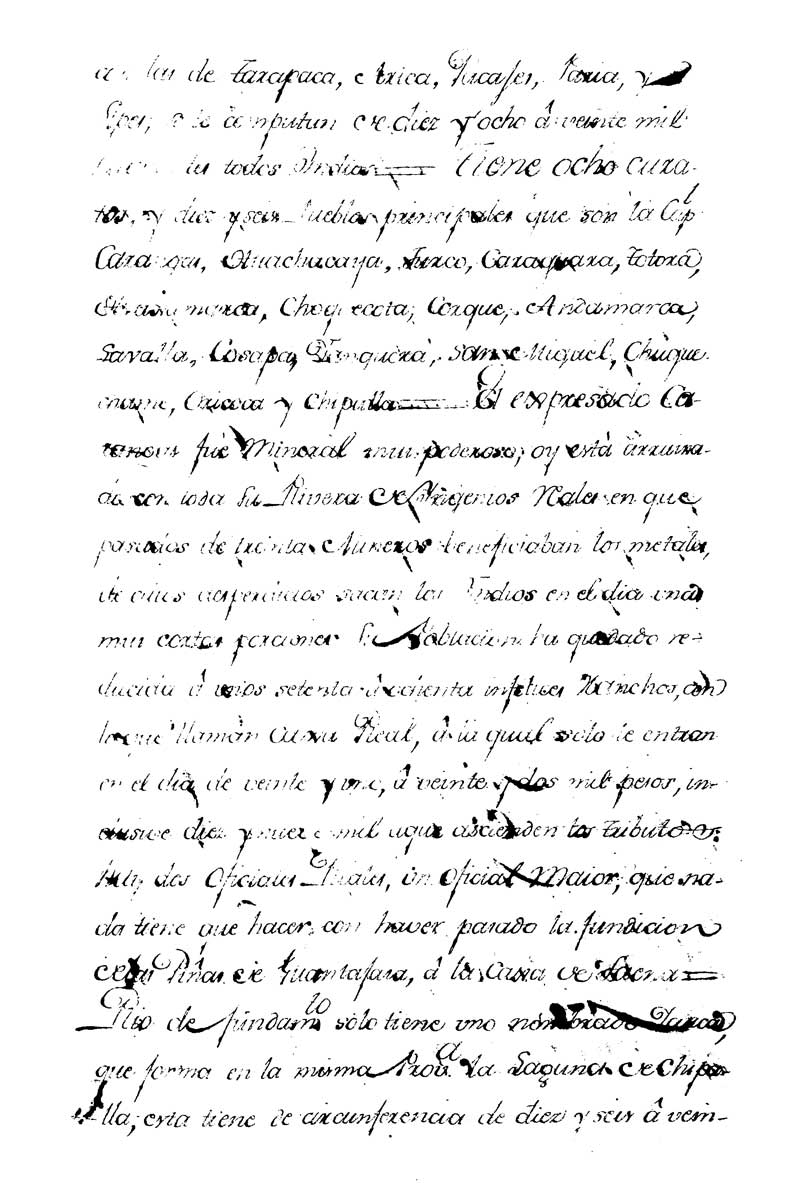 a las de Tarapaca, Arica, Pacajes, Paria, y
Lipes, se computan de diez y ocho â veinte mil
todos Indios = Tiene ocho cura-
tos, y diez y seis Pueblos principales que son la Cap.l
Carangas, Huachacaya, Turco, Caraquara, Totora,
Chuquecota, Corque, Andamarca,
Savalla, Cosapa, Tanquera, San Miguel, Chuque
Oricoca y Chipalla = El expresado Ca-
rangas fué Mineral mui poderoso, oy está arruina-
da con toda su Rivera de Ingenios Reales en que
pasados de treinta Mineros beneficiaban los metales,
de cuios desperdicios sacan los Indios en el dia unas
mui cortas porciones Su Poblacion ha quedado re-
ducida â unos setenta â ochenta infelices Ranchos, con
lo que llaman Caxa Real, â la qual solo le entran
en el dia de veinte y uno, â veinte y dos mil pesos, in-
clusive diez y nueve mil aque ascienden los tributos.
Hay dos Oficiales Reales, un Oficial Maior, que na-
da tiene que hacer, con haver pasado la fundicion
de las Piñas de Guantajaia, â la Caxa de Tacna =
Rio de fundam.to solo tiene uno nombrado
que forma en la misma Prov.a la Laguna de Chipa-
lla, esta tiene de circunferencia de diez y seis â vein-